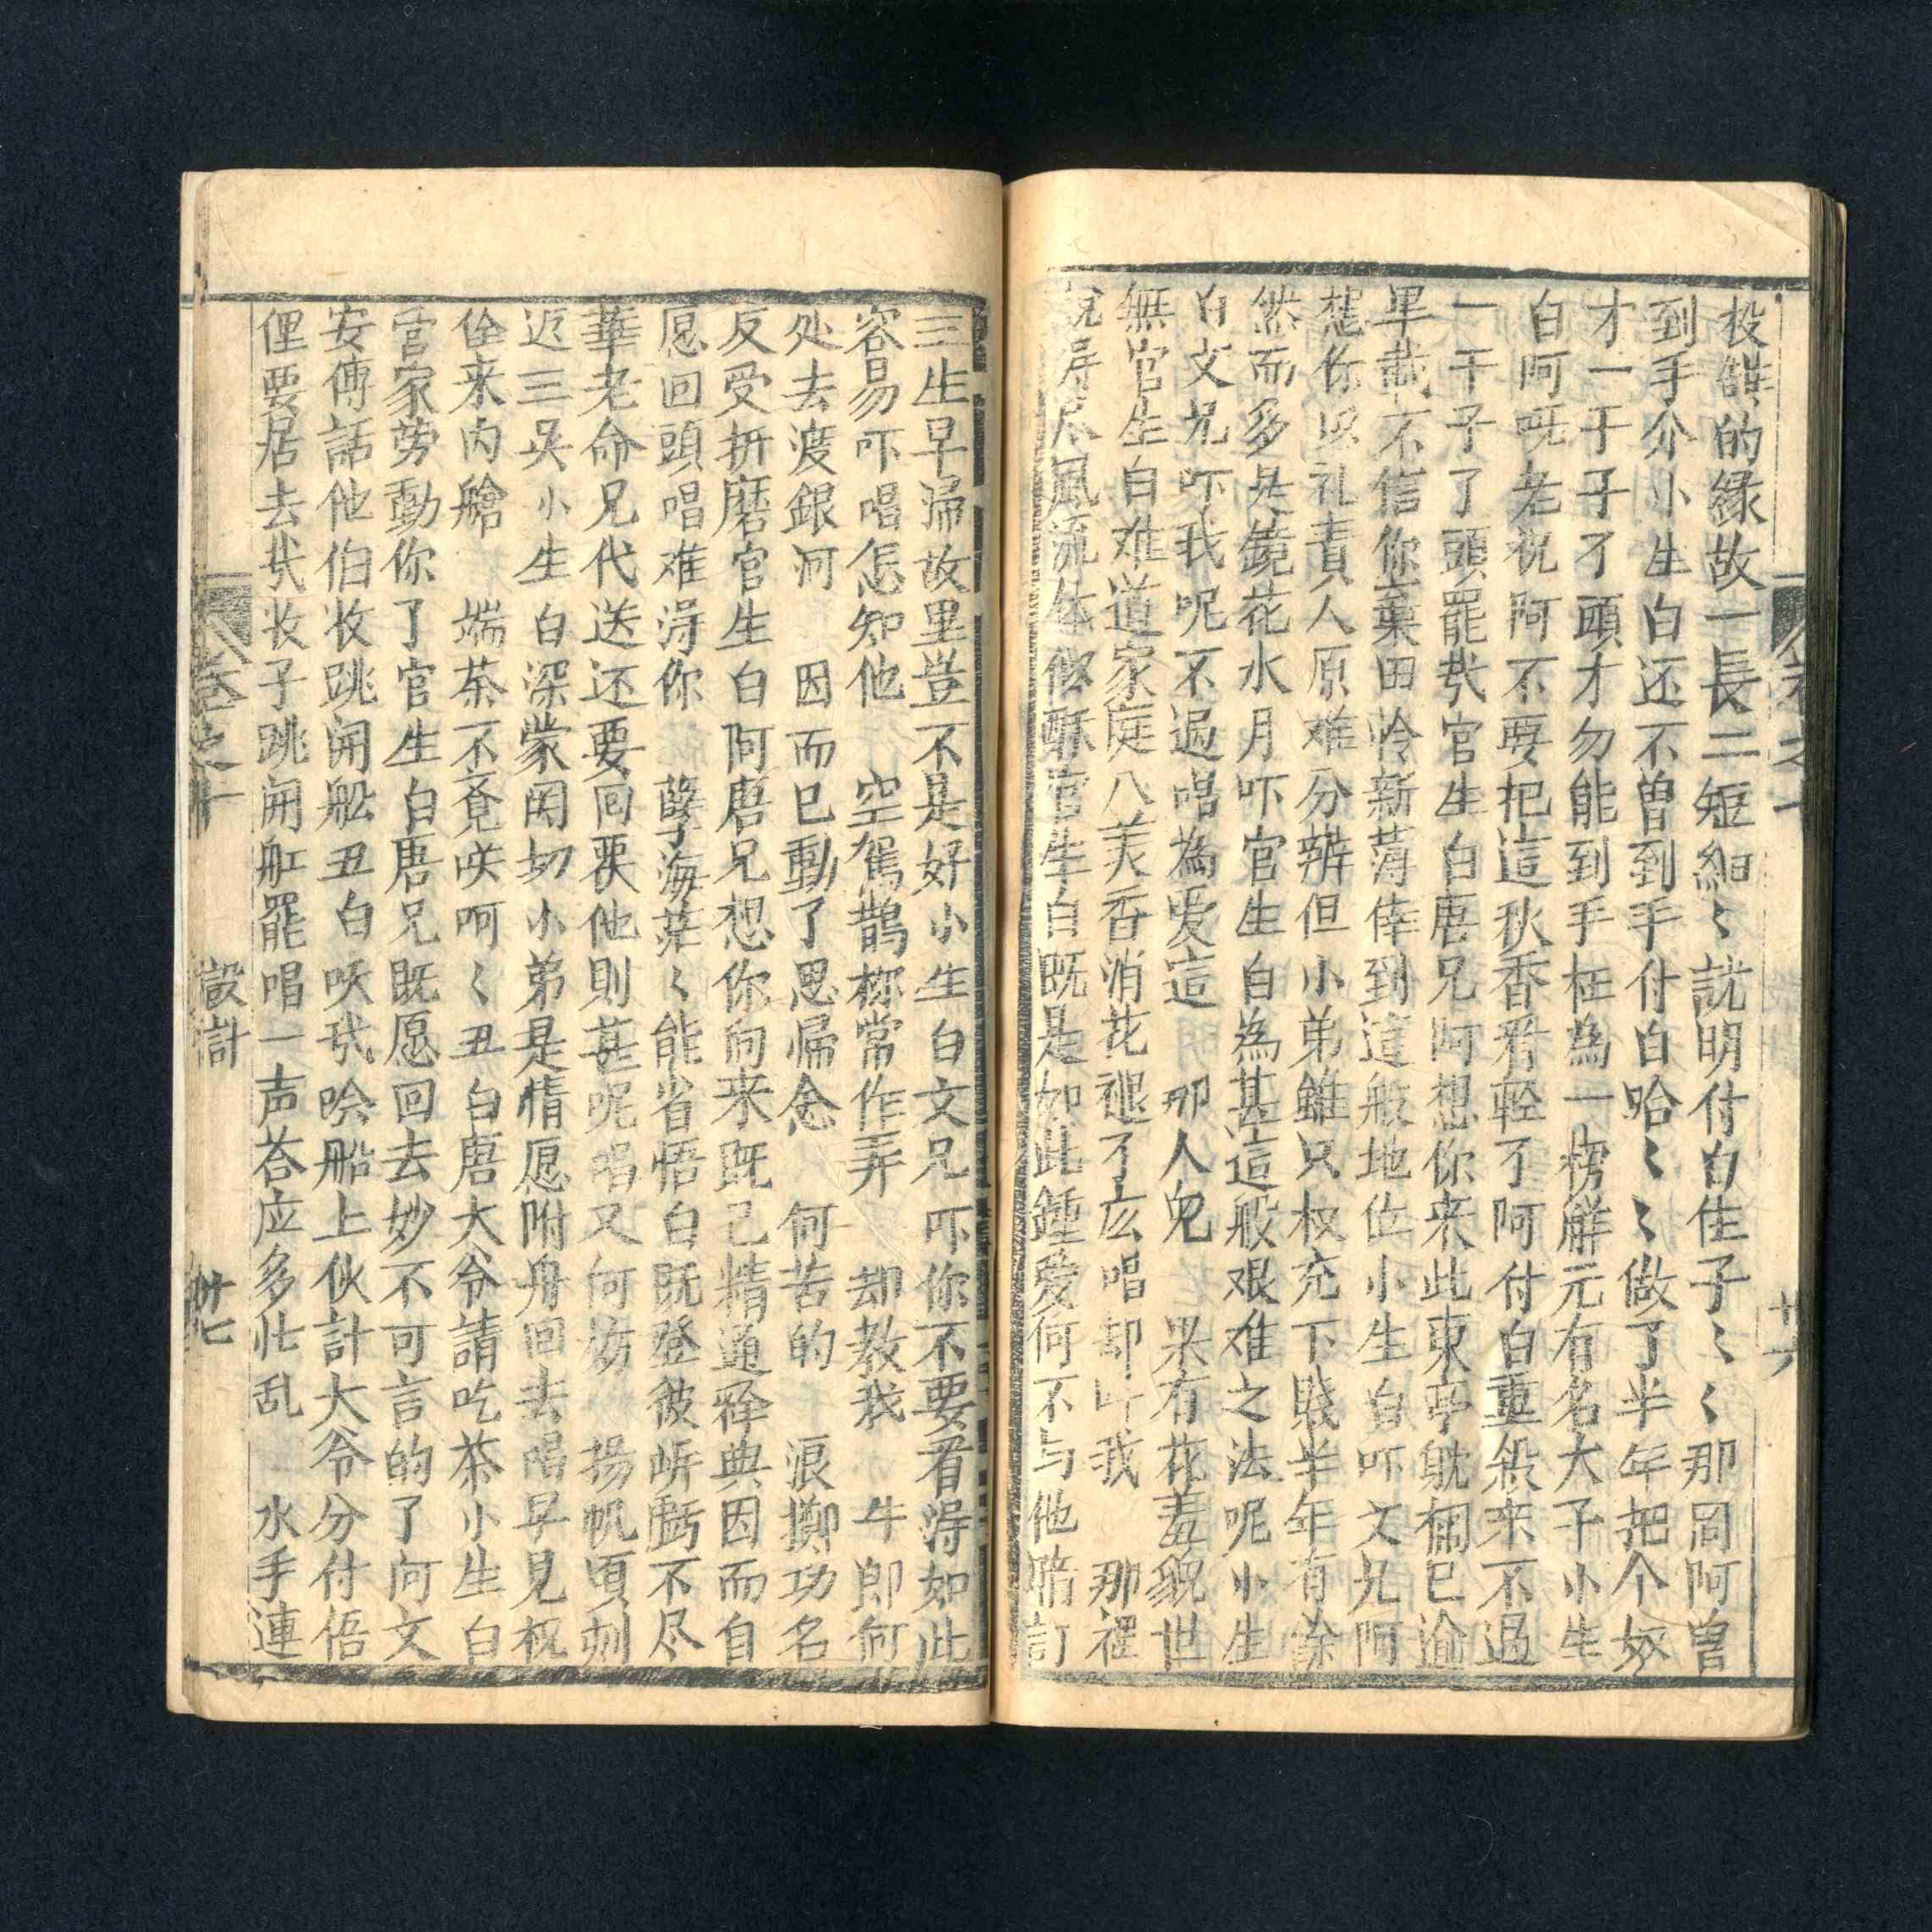 投靠的緣故一長二短細〻說明付白佳子〻〻那冋阿曽
到手介小生白还不曽到手付白哈〻〻做了半年把个奴
才一于子了頭才勿能到手枉為一榜觧元有名大才小生
白阿呀老祝阿不要把這秋香看輕了阿付白重殺来不過
一干子了頭罷㢤官生白唐兄阿想你来此東亭躭擱已逾
半載不信你棄田怜新薄倖到這般地位小生白吓文兄阿
想你以礼責人原难分辨但小弟雖只权充下賤半年有余
然而多是鏡花水月吓官生白為甚這般艰难之法呢小生
白文兄吓我呢不過唱為爱這　那人兒　果有花羞貌世
無官生白难道家庭八美香消花褪了広唱却叶我　那裡
說得尽風流体俢酥官生白既是如此鍾爱何不与他賠訂
卷之十
廿六
三生早㱕故里豈不是好小生白文兄吓你不要看淂如此
容易吓唱怎知他　空駕鵲桥常作弄　却教我　牛郎何
处去渡銀河　因而已動了思㱕念　何苦的　浪擲功名
反受折磨官生白　阿唐兄想你向来既已精通釋典因而自
愿回頭唱难淂你　孽海茫〻能省悟白既登彼岍雖不尽
華老命兄代送还要回覆他則甚呢唱又何妨　揚帆頃刻
返三吳小生白深蒙関切小弟是情愿附舟回去唱早見祝
佺来内艙　端茶不竟咲呵〻丑白唐大爷請吃茶小生白
官家劳動你了官生白唐兄既愿回去妙不可言的了阿文
安傳話他伯收跳開舩丑白咲㢤唅船上伙計大爷分付俉
俚要居去㢤收子跳開舡罷唱一声荅应多忙乱　水手連
卷之十
設計
廿七